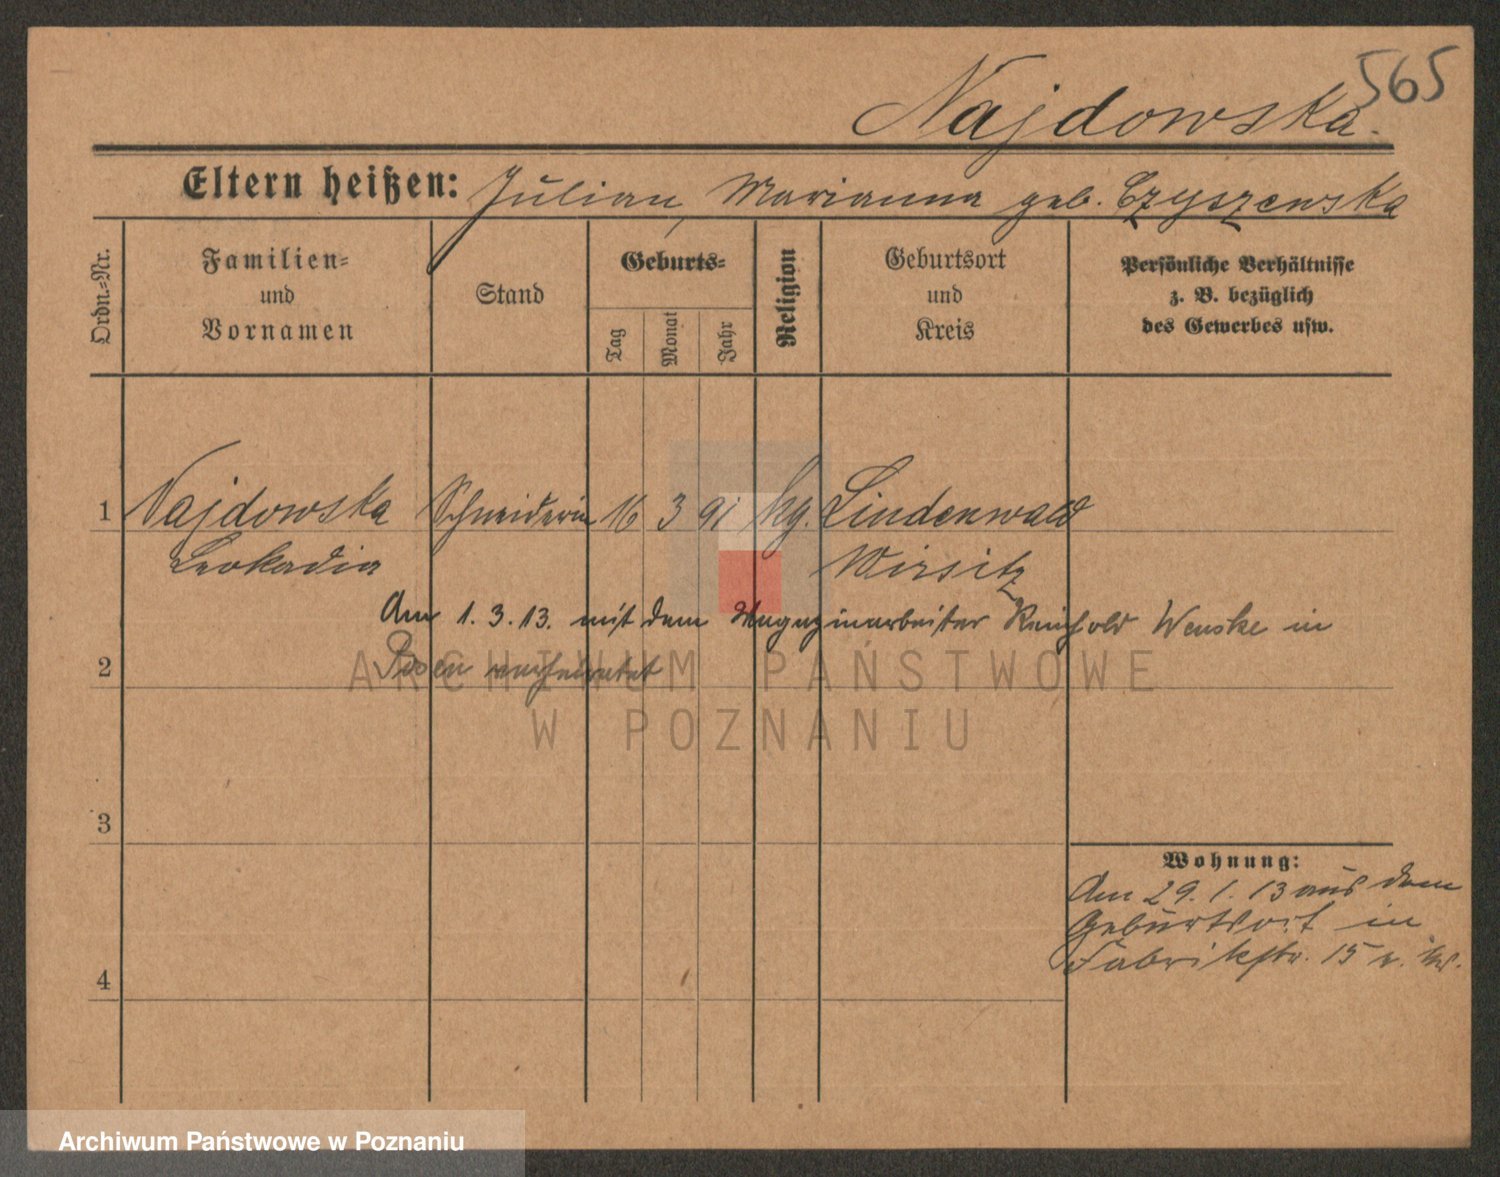 565
Najdowska.
Eltern heißen: Julian, Marianna geb. Czyszewska
Ordn.-Nr.
Familien-
und
Vornamen
Stand
Geburts-
Tag
Monat
Jahr
Religion
Geburtsort
und
Kreis
Persönliche Verhältnisse
z. B. bezüglich
des Gewerbes usw.
1 Najdowska Schneiderin 16 3 91 kg. Lindenwald
Leokadia Wirsitz
Am 1. 3. 13. mit dem Magazinarbeiter Reinhold Wenske in
2 Posen verheiratet
ARCHIWUM PAŃSTWOWE
W POZNANIU
3
Wohnung:
Am 29. 1. 13 aus dem
Geburtsort in
Fabrikstr. 15
4
Archiwum Państwowe w Poznaniu